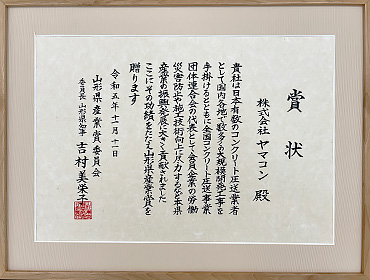 賞状
株式会社 ヤマコン 殿
貴社は日本有数のコンクリート圧送業者
として国内各地で数多くの大規模開発工事を
手掛けるとともに全国コンクリート圧送事業
団体連合会の代表として会員企業の労働
災害防止や施工技術向上に尽力するなど本県
産業の振興発展に大きく貢献されました
ここにその功績をたたえ山形県産業賞を
贈ります
令和五年十一月十一日
山形県産業賞委員会
委員長 山形県知事 吉村美栄子